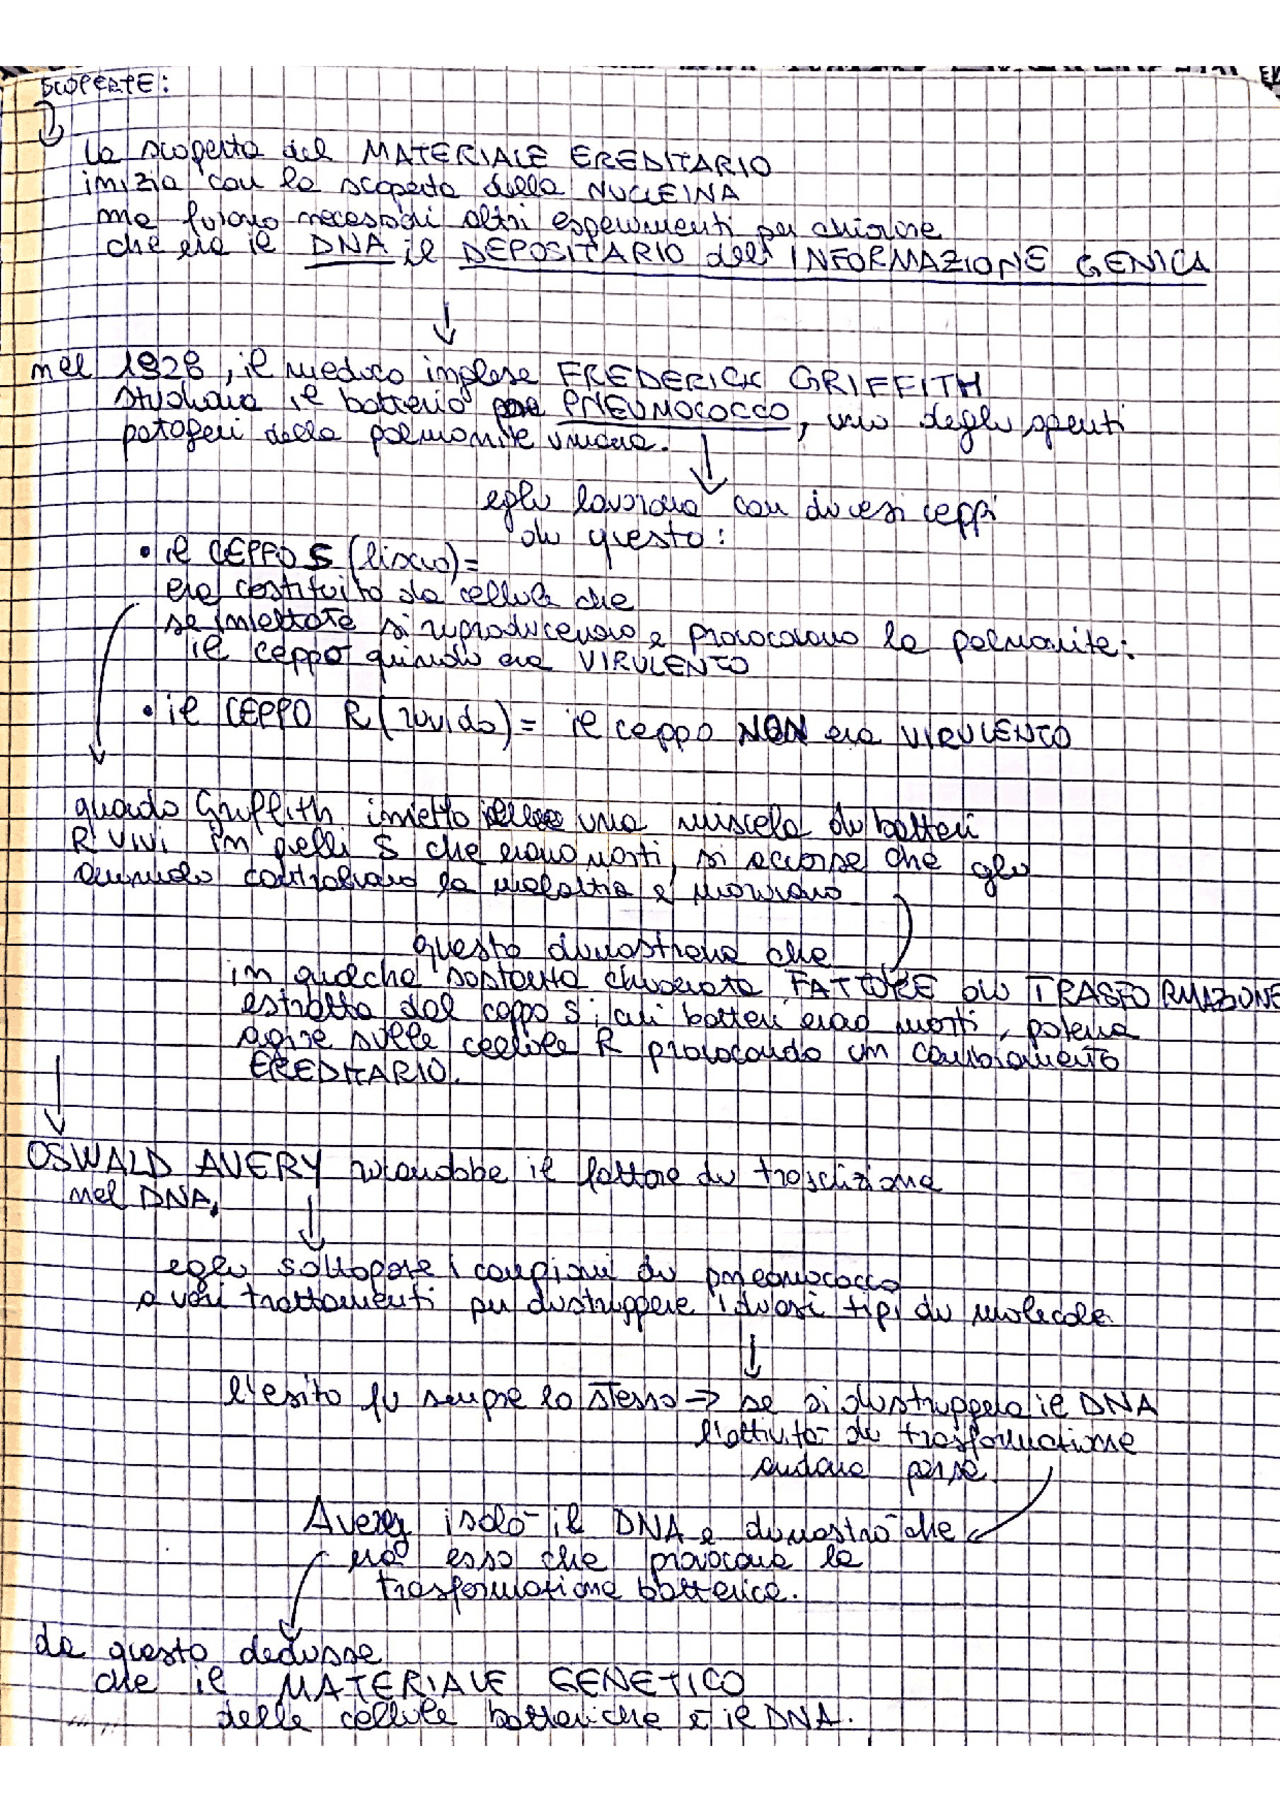 SCOPERTE:
la scoperta del MATERIALE EREDITARIO
inizia con la scoperta della NUCLEINA
ma furono necessari altri esperimenti per chiarire
che era il DNA il DEPOSITARIO dell'INFORMAZIONE GENICA
nel 1928, il medico inglese FREDERICK GRIFFITH
studiava il batterio PNEUMOCOCCO, uno degli agenti
patogeni della polmonite umana.
egli lavorava con diversi ceppi
di questo:
• il CEPPO S (liscio)=
era costituito da cellule che
se iniettate si riproducevano e provocavano la polmonite:
il ceppo quindi era VIRULENTO
• il CEPPO R (ruvido) = il ceppo NON era VIRULENTO
quando Griffith inietto una miscela di batteri
R VIVI in quelli S che erano morti, si accorse che gli
contraevano la malattia e morivano
questo dimostrava che
in qualche sostanza chiamata FATTORE DI TRASFORMAZIONE
estratta dal ceppo S, i cui batteri erano morti, poteva
agire sulle cellule R provocando un cambiamento
EREDITARIO.
OSWALD AVERY il fattore di trascrizione
nel DNA,
egli sottopose i campioni di pneomococco
a vari trattamenti per distruggere i diversi tipi di molecole
l'esito fu sempre lo stesso → se si distruggeva il DNA
l'attività di trasformazione
andava persa.
Avery isolò il DNA e dimostrò che
era esso che provocava la
trasformazione batterica.
da questo dedusse
che il MATERIALE GENETICO
delle cellule batteriche è il DNA.